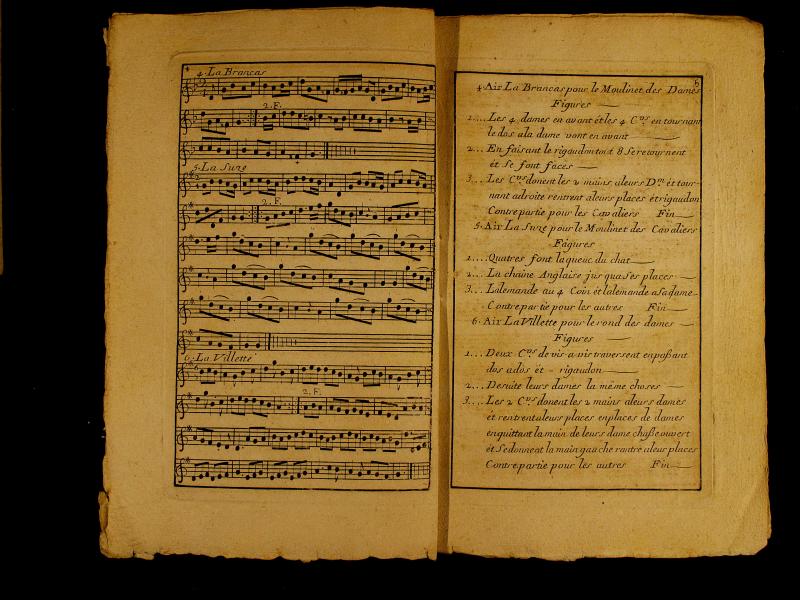 4
4. La Brancas
2. F.
5. La Suze
2. F.
6. La Villette
2. F.
6
4. Air La Brancas pour le Moulinet des Dames
Figures
1.... Les 4 dames en avant ét les 4 C.ns en tournant
le dos a la dame vont en avant
2... En faisant le rigaudon tout 8 Se retournent
ét Se font faces
3... Les C.ns donent les 2 mains aleurs D.m ét tour-
nant adroite rentrent aleurs places ét rigaudon
Contre partie pour les Cavaliers Fin
5. Air La Suze pour le Moulinet des Cavaliers
Fàgures
1.... Quatres font la queuë du chat
2... La chaine Anglaise jusqua Ses places
3... Lalemande au 4 Coin ét lalemande asa dame
Contre partie pour les autres Fin
6. Air La Villette pour le rond des dames
Figures
1... Deux C.ns de vis-a-vis traversent enpaßant
dos a dos ét - rigaudon
2... Desuite leurs dames la même choses
3.... Les 2 C.ns donent les 2 mains aleurs dames
ét rentrent aleurs places enplaces de dames
enquittant la main de leurs dame chaße ouvert
ét Sedonnent la main gauche rantre aleurs places
Contre partie pour les autres Fin